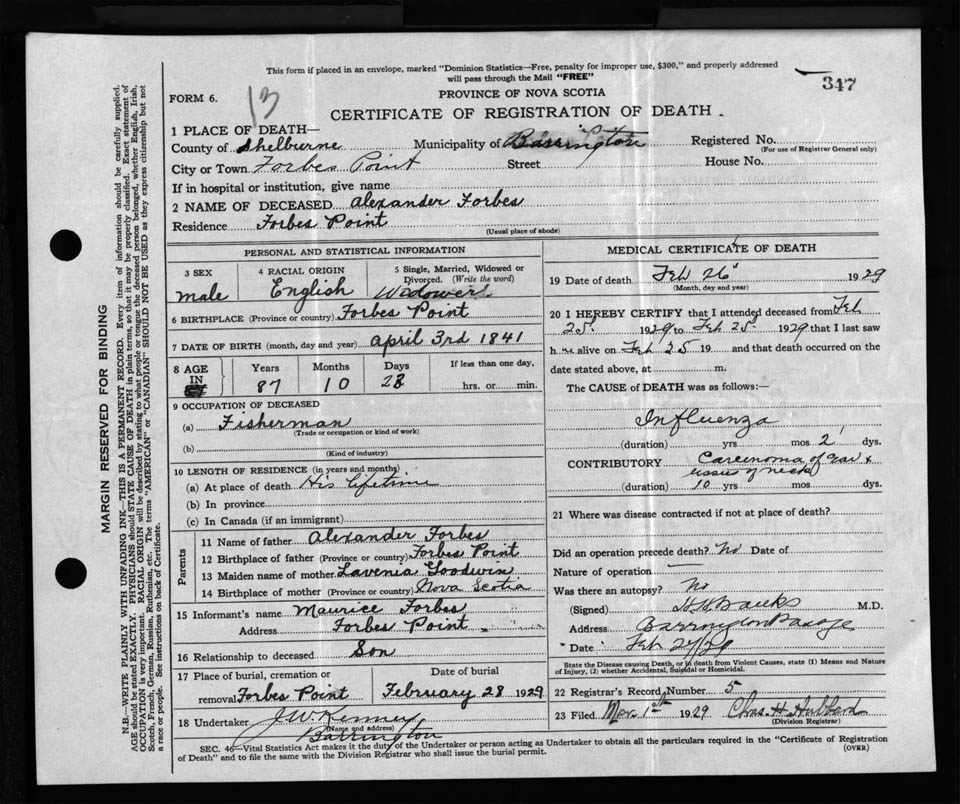 This form if placed in an envelope, marked "Dominion Statistics—Free, penalty for improper use, $300," and properly addressed
will pass through the Mail "FREE"
347
FORM 6.
13
PROVINCE OF NOVA SCOTIA
CERTIFICATE OF REGISTRATION OF DEATH
1 PLACE OF DEATH—
County of Shelburne Municipality of Barrington Registered No.
(For use of Registrar General only)
City or Town Forbes Point Street House No.
If in hospital or institution, give name
2 NAME OF DECEASED Alexander Forbes
Residence Forbes Point
(Usual place of abode)
PERSONAL AND STATISTICAL INFORMATION
3 SEX 4 RACIAL ORIGIN 5 Single, Married, Widowed or
Divorced. (Write the word)
male English Widower
6 BIRTHPLACE (Province or country) Forbes Point
7 DATE OF BIRTH (month, day and year) april 3rd 1841
8 AGE Years Months Days If less than one day,
IN 87 10 23 hrs. or min.
9 OCCUPATION OF DECEASED
(a) Fisherman
(Trade or occupation or kind of work)
(b)
(Kind of industry)
10 LENGTH OF RESIDENCE (in years and months)
(a) At place of death His lifetime
(b) In province
(c) In Canada (if an immigrant)
Parents
11 Name of father Alexander Forbes
12 Birthplace of father (Province or country) Forbes Point
13 Maiden name of mother Lavenia Goodwin
14 Birthplace of mother (Province or country) Nova Scotia
15 Informant's name Maurice Forbes
Address Forbes Point
16 Relationship to deceased Son
17 Place of burial, cremation or Date of burial
removal Forbes Point February 28 1929
18 Undertaker J W Kenney
(Name and address)
Barrington
MEDICAL CERTIFICATE OF DEATH
19 Date of death Feb 26 1929
(Month, day and year)
20 I HEREBY CERTIFY that I attended deceased from Feb
25 1929 to Feb 25 1929 that I last saw
h m alive on Feb 25 19 and that death occurred on the
date stated above, at m.
The CAUSE of DEATH was as follows:—
Influenza
(duration) yrs mos 2 dys.
CONTRIBUTORY Carcinoma of ear &
tissues of neck
(duration) 10 yrs mos dys.
21 Where was disease contracted if not at place of death?
Did an operation precede death? No Date of
Nature of operation —
Was there an autopsy? No
(Signed) Banks M.D.
Address Barrington Passage
Date Feb 27/29
State the Disease causing Death, or in death from Violent Causes, state (1) Means and Nature
of Injury, (2) whether Accidental, Suicidal or Homicidal.
22 Registrar's Record Number 5
23 Filed Mar 1st 1929 Chas. H. Hubbard
(Division Registrar)
SEC. 46—Vital Statistics Act makes it the duty of the Undertaker or person acting as Undertaker to obtain all the particulars required in the "Certificate of Registration
of Death" and to file the same with the Division Registrar who shall issue the burial permit.
(OVER)
MARGIN RESERVED FOR BINDING
N.B.—WRITE PLAINLY WITH UNFADING INK—THIS IS A PERMANENT RECORD. Every item of information should be carefully supplied.
AGE should be stated EXACTLY. PHYSICIANS should STATE CAUSE OF DEATH in plain terms, so that it may be properly classified. Exact statement of
OCCUPATION is very important. RACIAL ORIGIN will be described by stating to what people or tongue the deceased person belonged, whether English, Irish,
Scotch, French, German, Russian, Ruthenian, etc. The terms "AMERICAN" or "CANADIAN" SHOULD NOT BE USED as they express citizenship but not
a race or people. See instructions on back of Certificate.